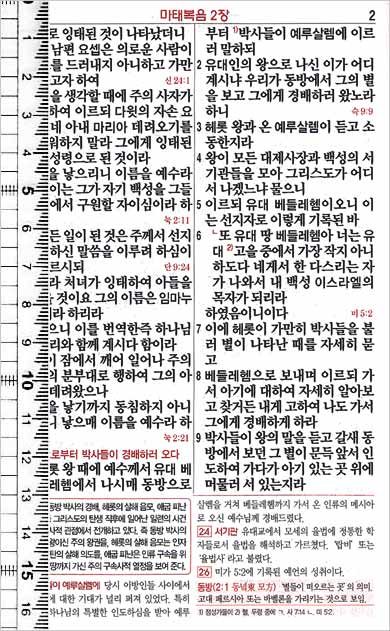 마태복음 2장
2
로 잉태된 것이 나타났더니
남편 요셉은 의로운 사람이
를 드러내지 아니하고 가만
고자 하여
신 24:1
을 생각할 때에 주의 사자가
하여 이르되 다윗의 자손 요
네 아내 마리아 데려오기를
워하지 말라 그에게 잉태된
성령으로 된 것이라
을 낳으리니 이름을 예수라
이는 그가 자기 백성을 그들
에서 구원할 자이심이라 하
눅 2:11
든 일이 된 것은 주께서 선지
하신 말씀을 이루려 하심이
르시되
단 9:24
라 처녀가 잉태하여 아들을
것이요 그의 이름은 임마누
라 하리라
으니 이를 번역한즉 하나님
리와 함께 계시다 함이라
이 잠에서 깨어 일어나 주의
의 분부대로 행하여 그의 아
데려왔으나
을 낳기까지 동침하지 아니
니 낳으매 이름을 예수라 하
눅 2:21
로부터 박사들이 경배하러 오다
롯 왕 때에 예수께서 유대 베
레헴에서 나시매 동방으로
동방 박사의 경배, 헤롯의 살해 음모, 애굽 피난
그리스도의 탄생 직후에 일어난 일련의 사건
사적 관점에서 전개하고 있다. 즉 동방 박사의
왕이신 주의 왕권을, 헤롯의 살해 음모는 인자
단의 살해 의도를, 애굽 피난은 인류 구속을 위
땅까지 가신 주의 구속사적 열정을 보여 준다.
아이 예루살렘에 당시 이방인들 사이에서
에 대한 기대가 널리 퍼져 있었다. 특히
하나님의 특별한 인도하심을 받아 예루
부터 1)박사들이 예루살렘에 이르
러 말하되
2 유대인의 왕으로 나신 이가 어디
계시냐 우리가 동방에서 그의 별
을 보고 그에게 경배하러 왔노라
하니
슥 9:9
3 헤롯 왕과 온 예루살렘이 듣고 소
동한지라
4 왕이 모든 대제사장과 백성의 서
기관들을 모아 그리스도가 어디
서 나겠느냐 물으니
5 이르되 유대 베들레헴이오니 이
는 선지자로 이렇게 기록된 바
6 ㄴ또 유대 땅 베들레헴아 너는 유
대 2)고을 중에서 가장 작지 아니
하도다 네게서 한 다스리는 자
가 나와서 내 백성 이스라엘의
목자가 되리라
하였음이니이다
미 5:2
7 이에 헤롯이 가만히 박사들을 불
러 별이 나타난 때를 자세히 묻
고
8 베들레헴으로 보내며 이르되 가
서 아기에 대하여 자세히 알아보
고 찾거든 내게 고하여 나도 가서
그에게 경배하게 하라
9 박사들이 왕의 말을 듣고 갈새 동
방에서 보던 그 별이 문득 앞서 인
도하여 가다가 아기 있는 곳 위에
머물러 서 있는지라
살렘을 거쳐 베들레헴까지 가서 온 인류의 메시아
로 오신 예수님께 경배드렸다.
24 서기관 유대교에서 모세의 율법에 정통한 학
자들로서 율법을 해석하고 가르쳤다. '랍비' 또는
'율법사'라고 불렸다.
26 미가 5:2에 기록된 예언의 성취이다.
동방(2:1 동녘東 모方) '별들이 떠오르는 곳'의 의미.
고대 페르시아 또는 바벨론을 가리키는 것으로 보임.
1) 점성가들이 2) 헬, 두령 중에 ㄱ. 사 7:14 ㄴ. 미 5:2
5
10
11
12
13
14
15
16